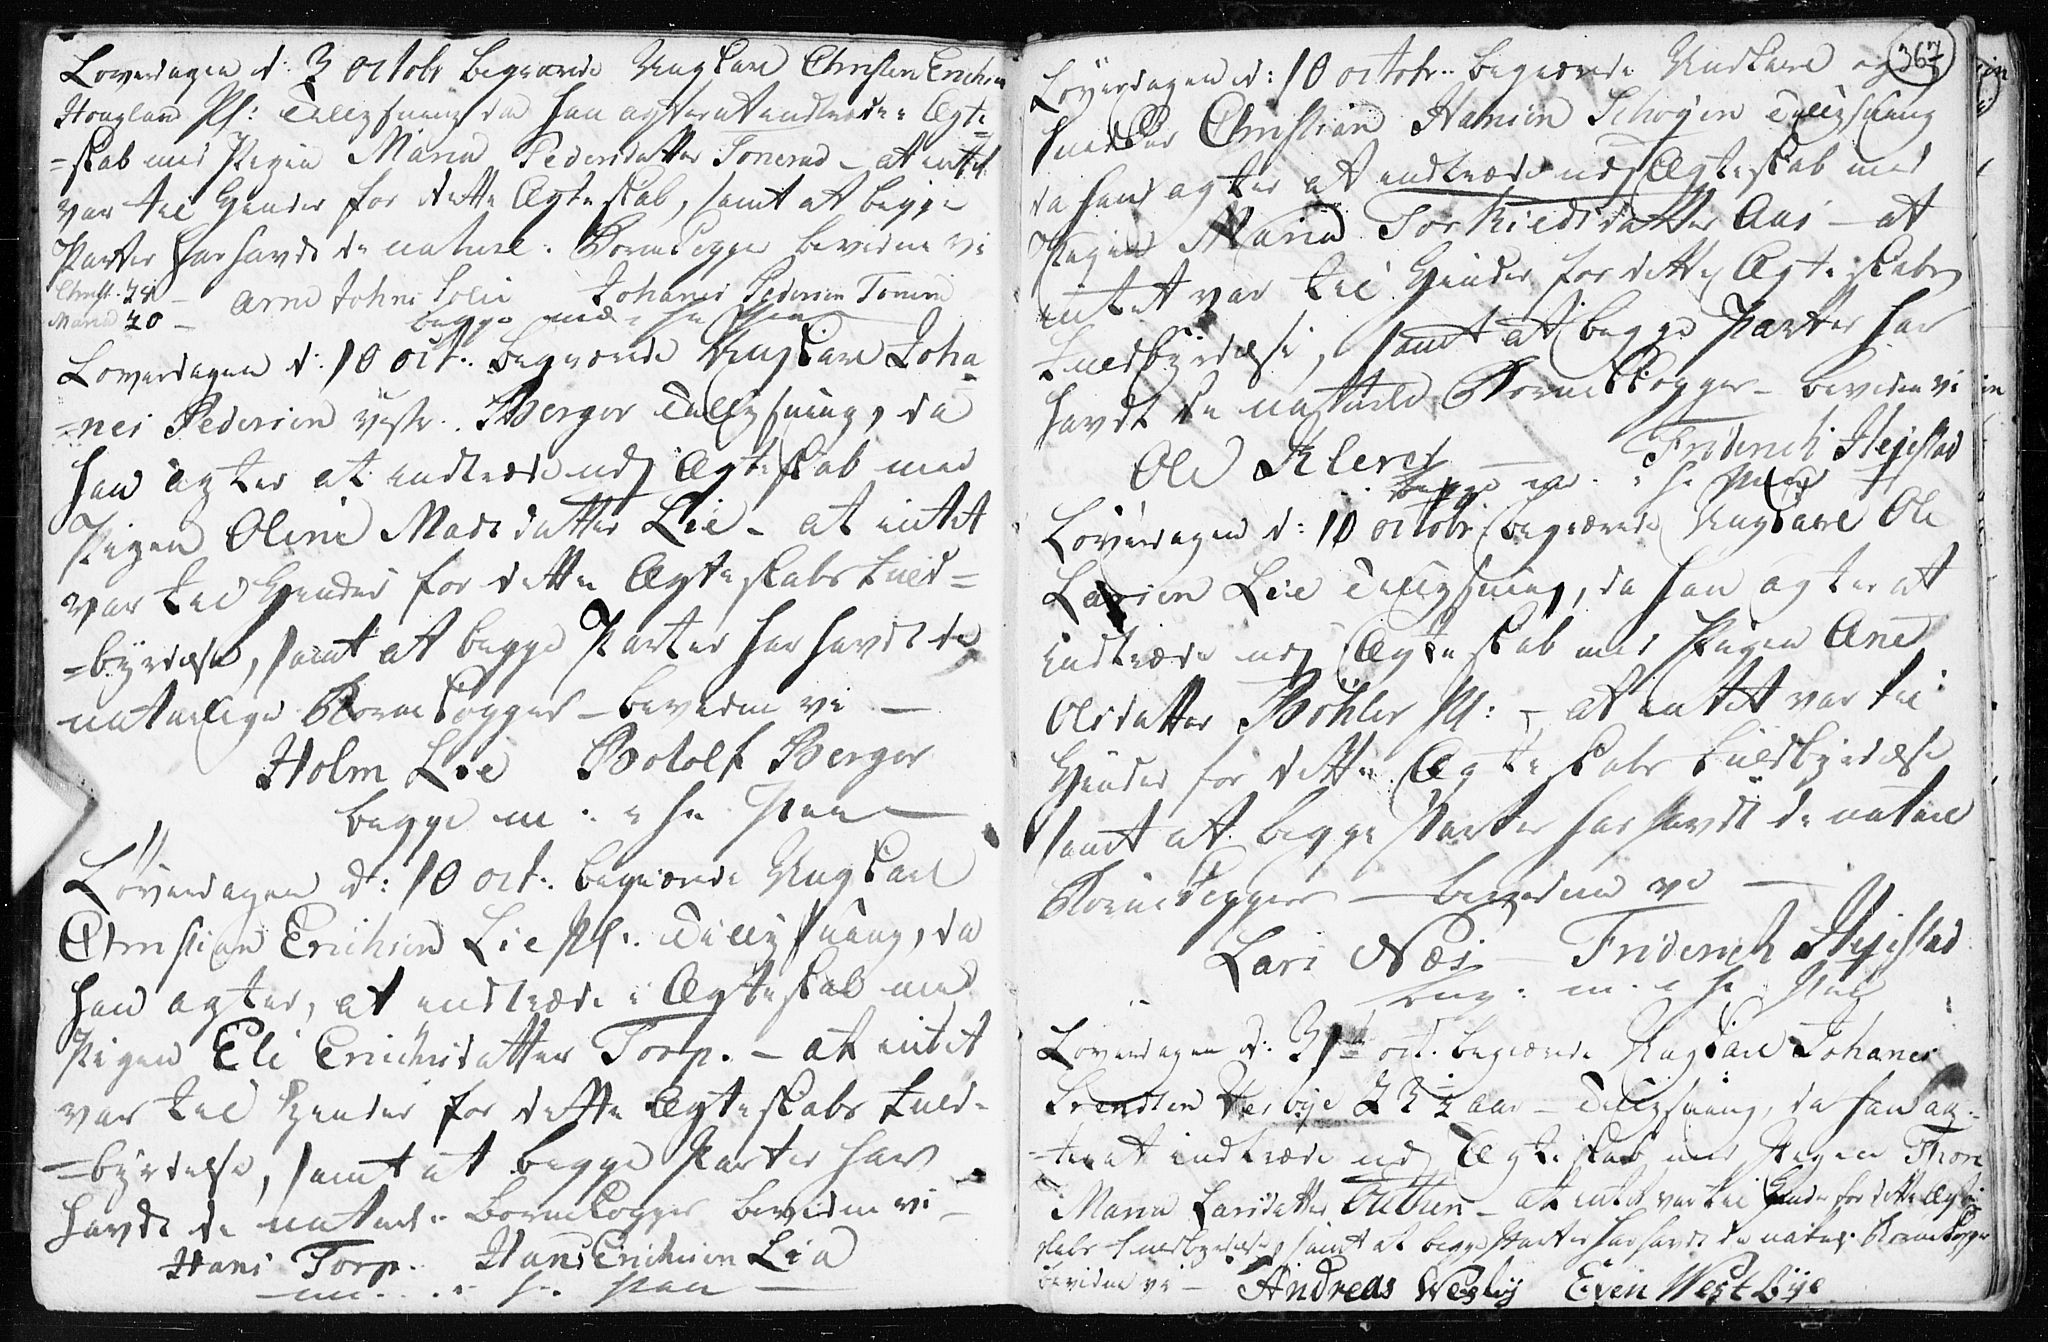 Løverdagen d: 3 octobr begiærede Ungkarl Christen Erichsen
Houglan Pl: Tillysning da han agter at indtræde i Ægte=
=skab med Pigen Maria Pedersdatter Tonerud - at intet
var til Hinder for dette Ægteskab, samt at begge
Parter har havdt de naturl. Bornekopper bevidne vi
Christ. 24 - Arne Johns Lolie Johanes Pedersen Tonerud
Maria 20 - begge m: i h: Pen
Loverdagen d: 10 oct: begiærede Ungkarl Joha
=nes Pedersen vestr. Berger Tillysning, da
han agter at indtræde udj Ægteskab med
Pigen Oline Madsdatter Lie - at intet
var til Hinder for dette Ægteskabs Fuld=
=byrdelse, samt at begge Parter har havdt de
naturlige Bornekopper - bevidne vi -
Holm Lie Botolf Berger
begge m: i h: Pen
Løverdagen d: 10 oct: begiærede Ungkarl
Christian Erichsen Lie Pl: Tillysning, da
han agter, at indtræde i Ægteskab med
Pigen Eli Erichsdatter Torp. - at intet
var til Hinder for dette Ægteskabs Fuld=
=byrdelse, samt at begge Parter har
havdt de naturl: Bornekopper bevidne vi -
Hans Torp. Hans Erichsen Lia
m: i h: Pen
367
Løverdagen d: 10 octobr: begiærede Undkarl og
Christian Hansen Schøyen Tillysning
da han agter at indtræde udj Ægteskab med
Pigen Maria Torkieldsdatter Aas - at
intet var til Hinder for dette Ægteskabs
Fuldbyrdelse, samt at begge Parter har
havdt de naturlie Bornekopper - bevidne vi
Ole Kleve - Friderich Hejestad
begge m: i h: Pen
Løverdagen d: 10 octobr begiærede Ungkarl Ole
Larsen Lie Tillysning, da han agter at
indtræde udj Ægteskab med Pigen Ane
Olsdatter Böhler Pl: - at intet var til
Hinder for dette Ægteskabs Fuldbyrdelse
samt at begge Parter har havdt de naturl
Bornekopper - bevidne vi -
Lars Næs - Friderich Hejestad
beg: m: i h: Pen
Loverdagen d: 31te oct. begiærede Ungkarl Johanes
Svendsen Vesbye 22½ aar - Tillysning, da han ag=
=ter at indtræde udj Ægteskab med Pigen Thore
Maria Larsdatter - at intet var til Hinder for dette Ægte
skabs Fuldbyrdelse, samt at begge Parter har havdt de naturl: Bornekopper
bevidne vi - Andreas Wesby Even West bye